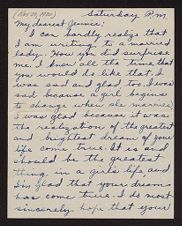 Saturday P.M
My dearest Jennie:
I can hardly realize that
I am writing to a married
lady. You did surprise
me. I knew all the time that
you would do like that. I
was sad and glad too. I was
sad because a girl has
to change when she marries
I was glad because it was
the realization of the greatest
and brightest dream of your
life come true. It is and
should be the greatest
thing in a girl's life and
I'm glad that your dreams
has come true. I do most
sincerely hope that your